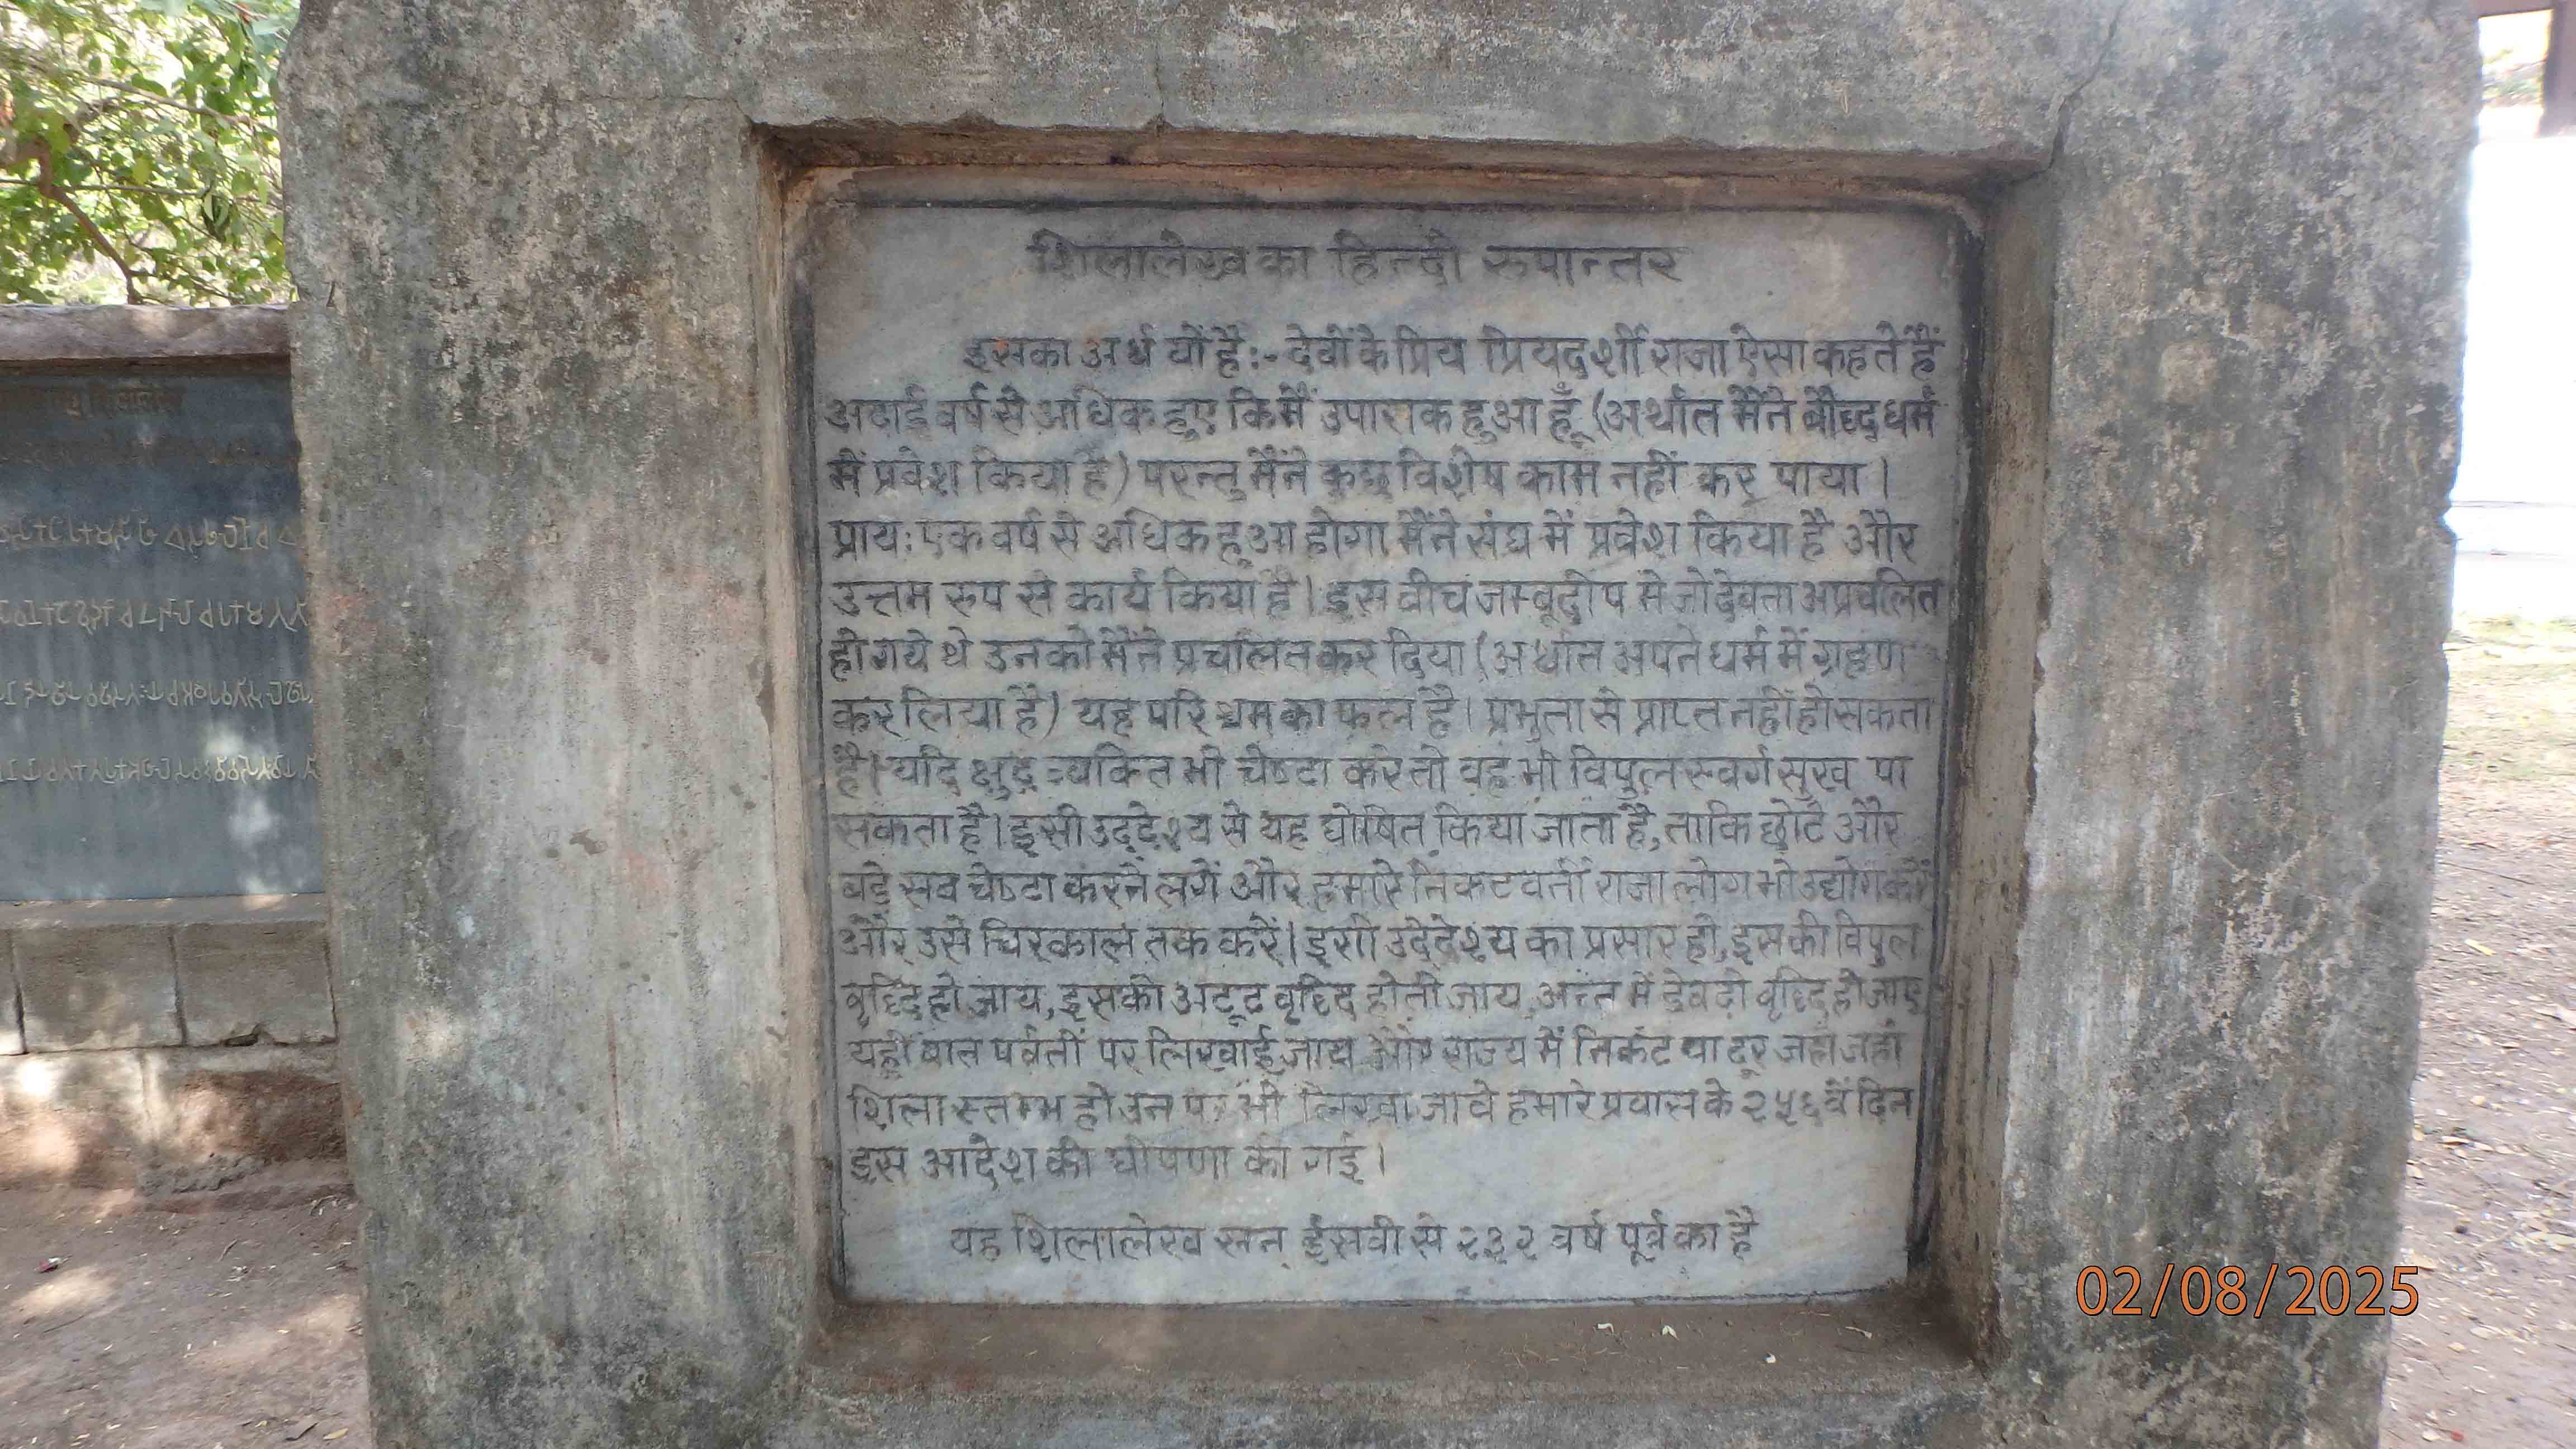 शिलालेख का हिन्दी रुपान्तर
इसका अर्थ यों है:- देवों के प्रिय प्रियदर्शी राजा ऐसा कहते हैं
अढाई वर्ष से अधिक हुए कि मैं उपासक हुआ हूँ (अर्थात मैंने बौद्ध धर्म
में प्रवेश किया है) परन्तु मैंने कुछ विशेष काम नहीं कर पाया।
प्राय: एक वर्ष से अधिक हुआ होगा मैंने संघ में प्रवेश किया है और
उत्तम रुप से कार्य किया है। इस बीच जम्बूद्वीप मे जो देवता अप्रचलित
हो गये थे उनको मैंने प्रचलित कर दिया (अर्थात अपने धर्म में ग्रहण
कर लिया है) यह परिश्रम का फल है। प्रभुता से प्राप्त नहीं हो सकता
है। यदि क्षुद्र व्यकित भी चेष्टा करे तो वह भी विपुल स्वर्ग सुख पा
सकता है। इसी उद्देश्य से यह घोषित किया जाता है, ताकि छोटे और
बड़े सब चेष्टा करनें लगें और हमारे निकटवर्ती राजा लोग भी उद्योग करें
और उसे चिरकाल तक करें। इसी उदेदेश्य का प्रसार हो, इसकी विपुल
वृद्दि हो जाय, इसकी अटूट वृद्दि होती जाय, अन्त में डेवढी वृद्दि हो जाए
यही बात पर्वतों पर लिखाई जाय और राज्य में निकट या दूर जहां जहां
शिला स्तम्भ हो उन पर भी लिखा जावे हमारे प्रवास के २५६ वें दिन
इस आदेश की घोषणा की गई।
यह शिलालेख सन ईसवी से २३२ वर्ष पूर्व का है
02/08/2025